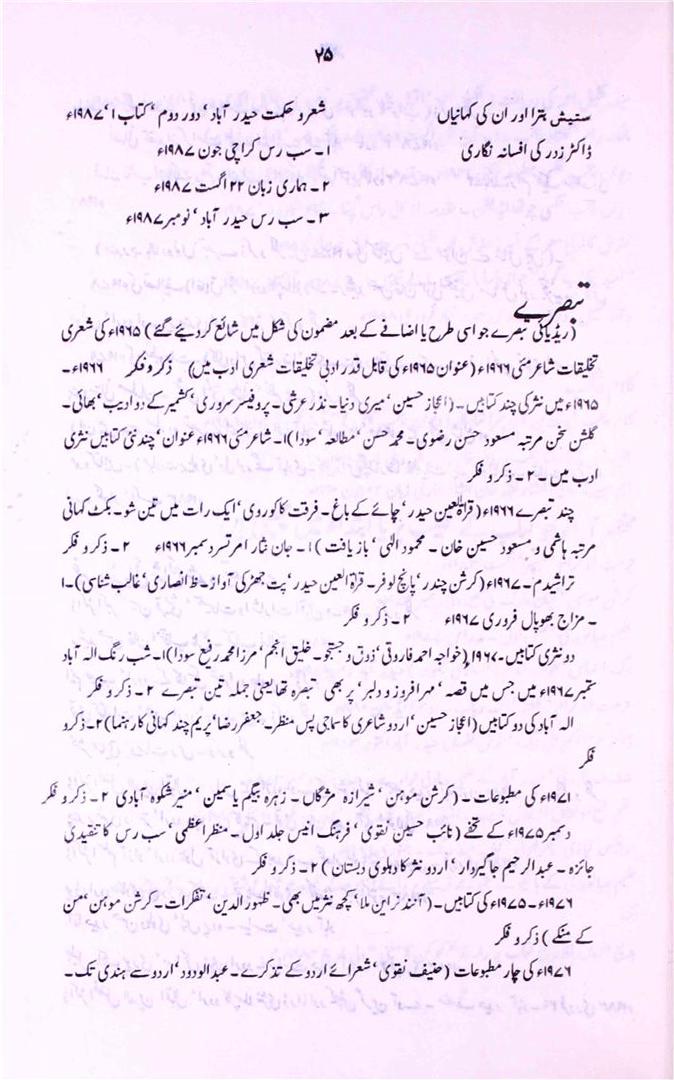 ۲۵
ستیش بترا اور ان کی کہانیاں شعر و حکمت حیدر آباد‘ دور دوم‘ کتاب ۱‘ ۱۹۸۷ء
ڈاکٹر زور کی افسانہ نگاری ۱۔ سب رس کراچی جون ۱۹۸۷ء
۲۔ ہماری زبان ۲۲ اگست ۱۹۸۷ء
۳۔ سب رس حیدر آباد‘ نومبر ۱۹۸۷ء
تبصرے
(ریڈیائی تبصرے جو اسی طرح یا اضافے کے بعد مضمون کی شکل میں شائع کردیئے گئے) ۱۹۶۵ء کی شعری
تخلیقات شاعر مئی ۱۹۶۶ء (عنوان ۱۹۶۵ء کی قابل قدر ادبی تخلیقات شعری ادب میں) ذکر و فکر ۱۹۶۶ء۔
۱۹۶۵ء میں نثر کی چند کتابیں۔ (اعجاز حسین‘ میری دنیا۔ نذر عرشی۔ پروفیسر سروری‘ کشمیر کے دو ادیب‘ بھائی۔
گلشن سخن مرتبہ مسعود حسن رضوی۔ محمد حسن‘ مطالعہ‘ سودا) ۱۔ شاعر مئی ۱۹۶۶ء عنوان‘ چند نئی کتابیں نثری
ادب میں۔ ۲۔ ذکر و فکر
چند تبصرے ۱۹۶۶ء (قرۃ العین حیدر‘ چائے کے باغ۔ فرقت کاکوروی‘ ایک رات میں تین شو۔ بکٹ کہانی
مرتبہ ہاشمی و مسعود حسین خان۔ محمود الٰہی‘ بازیافت) ۱۔ جان نثار امرتسر دسمبر ۱۹۶۶ء ۲۔ ذکر و فکر
تراشیدم۔ ۱۹۶۷ء (کرشن چندر‘ پانچ لوفر۔ قرۃ العین حیدر‘ پت جھڑ کی آواز۔ ظ انصاری‘ غالب شناسی)۔ ۱
۔ مزاج بھوپال فروری ۱۹۶۷ء ۲۔ ذکر و فکر
دو نثری کتابیں۔ ۱۹۶۷ (خواجہ احمد فاروقی‘ ذوق و جستجو۔ خلیق انجم‘ مرزا محمد رفیع سودا) ۱۔ شب رنگ الہ آباد
ستمبر ۱۹۶۷ء میں جس میں قصہ ‘ مہر افروز و دلبر‘ پر بھی ‘ تبصرہ تھا یعنی جملہ تین تبصرے ۲۔ ذکر و فکر
الہ آباد کی دو کتابیں (اعجاز حسین‘ اردو شاعری کا سماجی پس منظر۔ جعفر رضا‘ پریم چند کہانی کا رہنما) ۲۔ ذکر و
فکر
۱۹۷۱ء کی مطبوعات۔ (کرشن موہن‘ شیرازہ مژگاں۔ زہرہ بیگم یاسمین‘ منیر شکوہ آبادی ۲۔ ذکر و فکر
دسمبر ۱۹۷۵ء کے تحفے (نائب حسین نقوی‘ فرہنگ انیس جلد اول۔ منظر اعظمی‘ سب رس کا تنقیدی
جائزہ۔ عبدالرحیم جاگیردار‘ اردو نثر کا دہلوی دبستان) ۲۔ ذکر و فکر
۱۹۷۶ء۔ ۱۹۷۵ء کی کتابیں۔ (آنند نراین ملا‘ کچھ نثر میں بھی۔ ظہور الدین‘ تفکرات۔ کرشن موہن‘ من
کے منکے) ذکر و فکر
۱۹۷۶ء کی چار مطبوعات (حنیف نقوی‘ شعرائے اردو کے تذکرے۔ عبدالودود‘ اردو سے ہندی تک۔